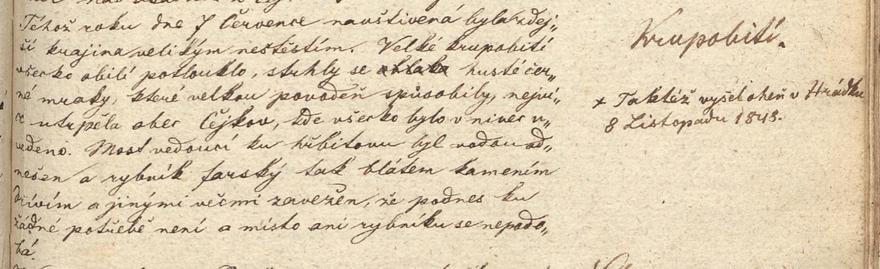 Téhož roku dne 7 Července navštivená byla zdej„
ší krajina velikým neštěstím. Velké krupobití
všecko obilí potlouklo, stuhly se oblaka husté čer„
né mraky, které velkou povodeň spůsobily, nejví„
c utrpěla obec Čejkov, kde všecko bylo v nivec u„
vedeno. Most vedoucí ku hřbitovu byl vodou od„
nešen a rybník farský tak blátem kamením
dřívím a jinými věcmi zavežen, že podnes ku
žádné potřebě není a místo ani rybníku se nepodo„
bá.
Krupobití.
x Taktéž vyšel oheň v Hrádku
8 Listopadu 1843.